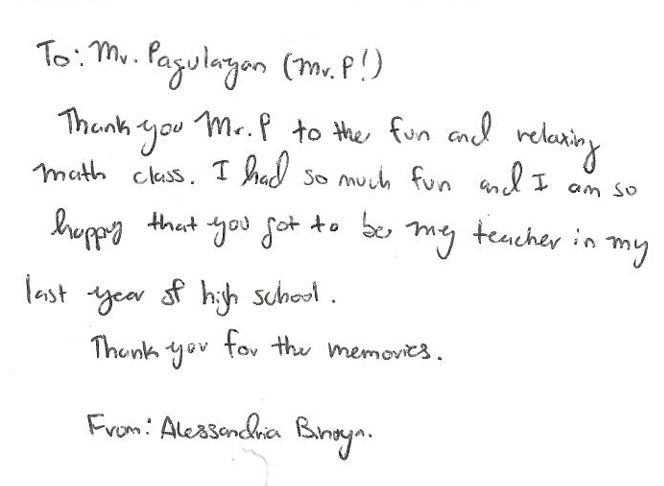 To: Mr. Pagulayan (Mr. P!)
Thank you Mr. P to the fun and relaxing
math class. I had so much fun and I am so
happy that you got to be my teacher in my
last year of high school.
Thank you for the memories.
From: Alessandria